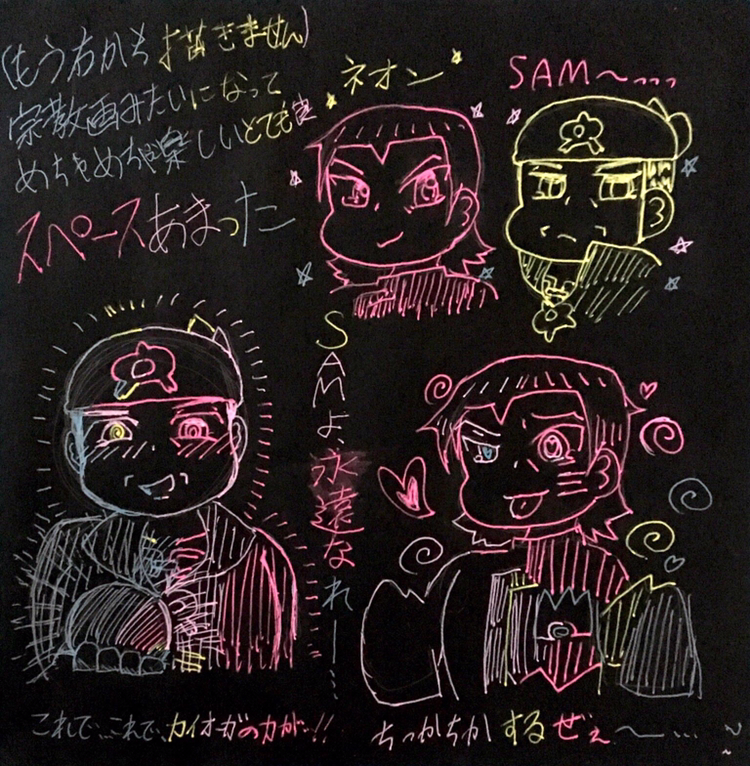 (もう 描きません)
宗教画みたいになって
めちゃめちゃ楽しいとても
スペースあまったー
ネオン
SAM〜...
SAMよ、永遠なれー...
これで...これで、カイオーガの力が...!!
ちっかちかするぜぇ〜...